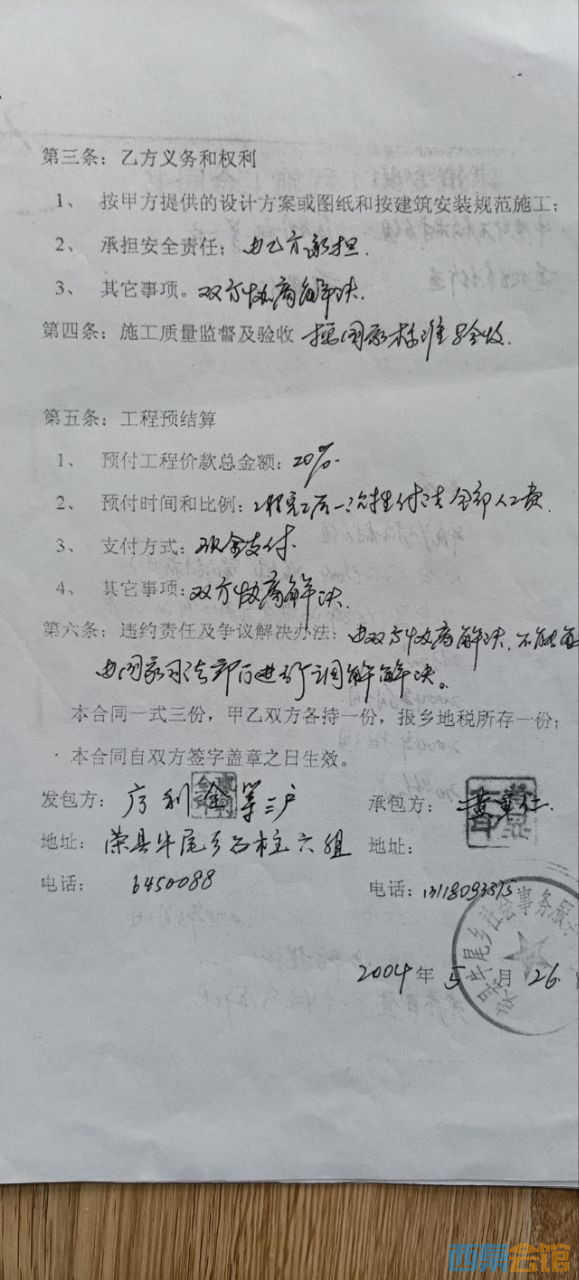 第三条：乙方义务和权利
1、 按甲方提供的设计方案或图纸和按建筑安装规范施工；
2、 承担安全责任；由乙方承担.
3、 其它事项。双方协商解决.
第四条：施工质量监督及验收 按国家标准验收.
第五条：工程预结算
1、 预付工程价款总金额：20%.
2、 预付时间和比例：工程完工后一次性付清全部人工费.
3、 支付方式：现金支付.
4、 其它事项：双方协商解决.
第六条：违约责任及争议解决办法：由双方协商解决.不能
由国家司法部门进行调解解决。
本合同一式三份，甲乙双方各持一份，报乡地税所存一份；
本合同自双方签字盖章之日生效。
发包方： 利金等三户 承包方： 黄 仁
地址： 荣县牛尾乡石柱六组 地址：
电话： 6450088 电话：
牛尾乡社会事务服
2004年5月26
西祠会馆